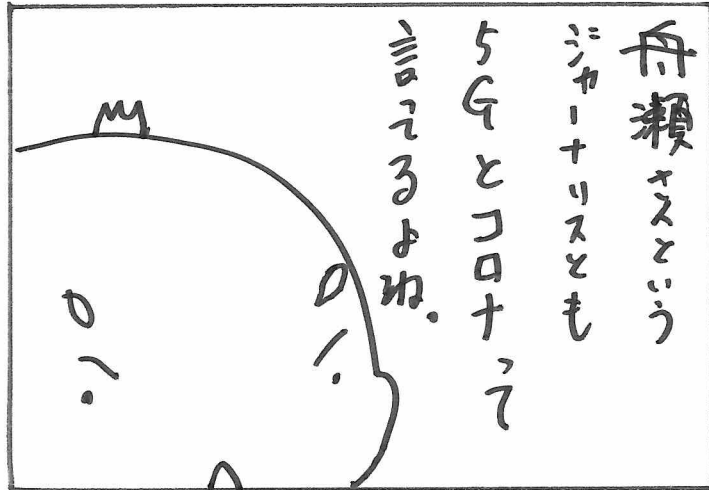 舟瀬さんという
ジャーナリスとも
5Gとコロナって
言ってるよね.